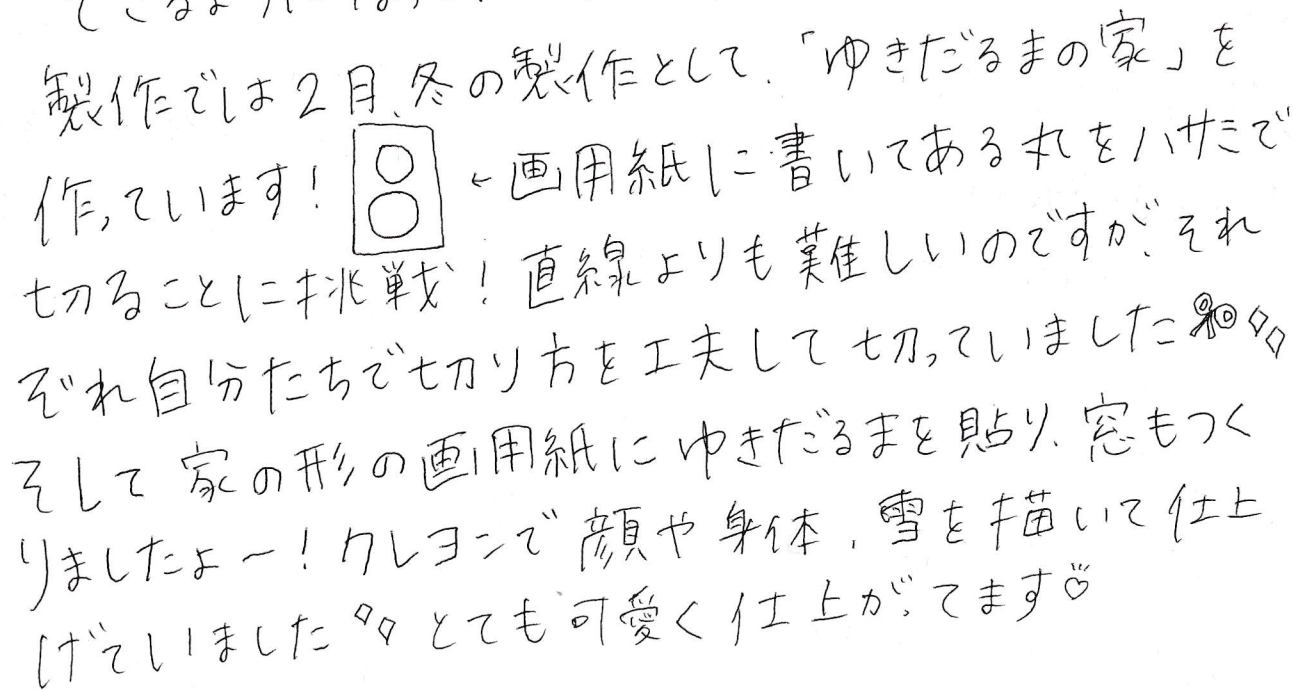 製作では2月、冬の製作として、「ゆきだるまの家」を
作っています！ ←画用紙に書いてある丸をハサミで
切ることに挑戦！直線よりも難しいのですが、それ
ぞれ自分たちで切り方を工夫して切っていました
そして家の形の画用紙にゆきだるまを貼り、窓もつく
りましたよ～！クレヨンで顔や身体、雪を描いて仕上
げていました とても可愛く仕上がってます♡